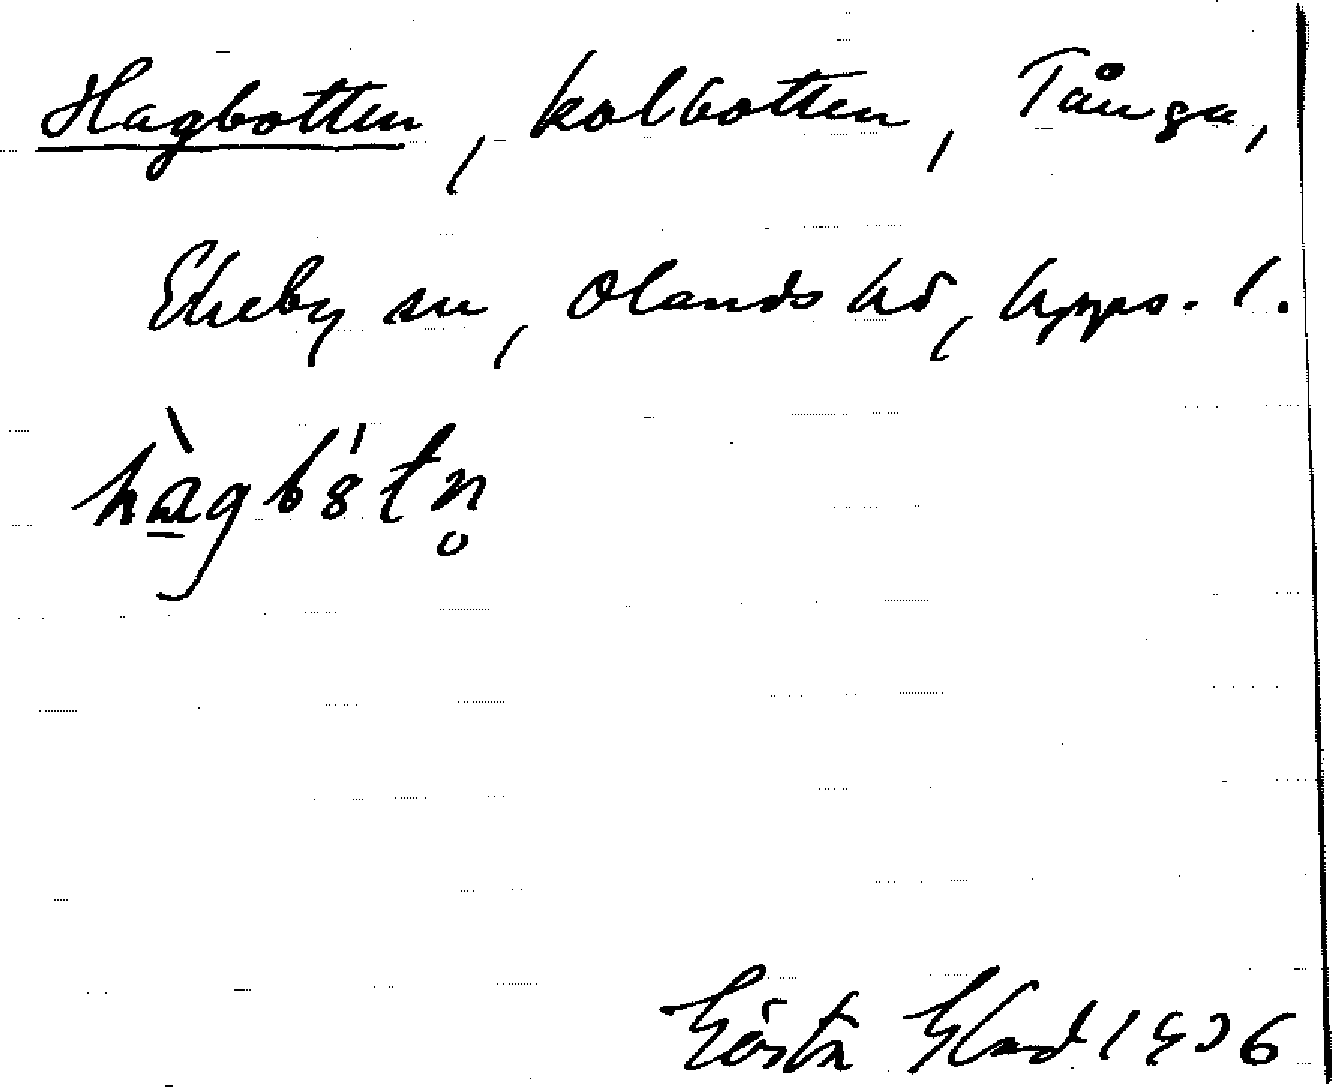 Hagbotten, kolbotten, Tånga,
Ekeby sn, Olands hd, Upps. l.
hàgbótn̥
Gösta 1936